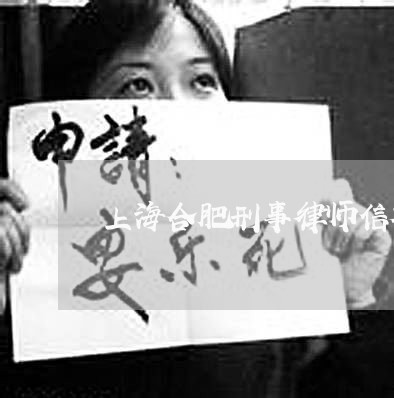 申請：
上海合肥刑事律师信
安乐死